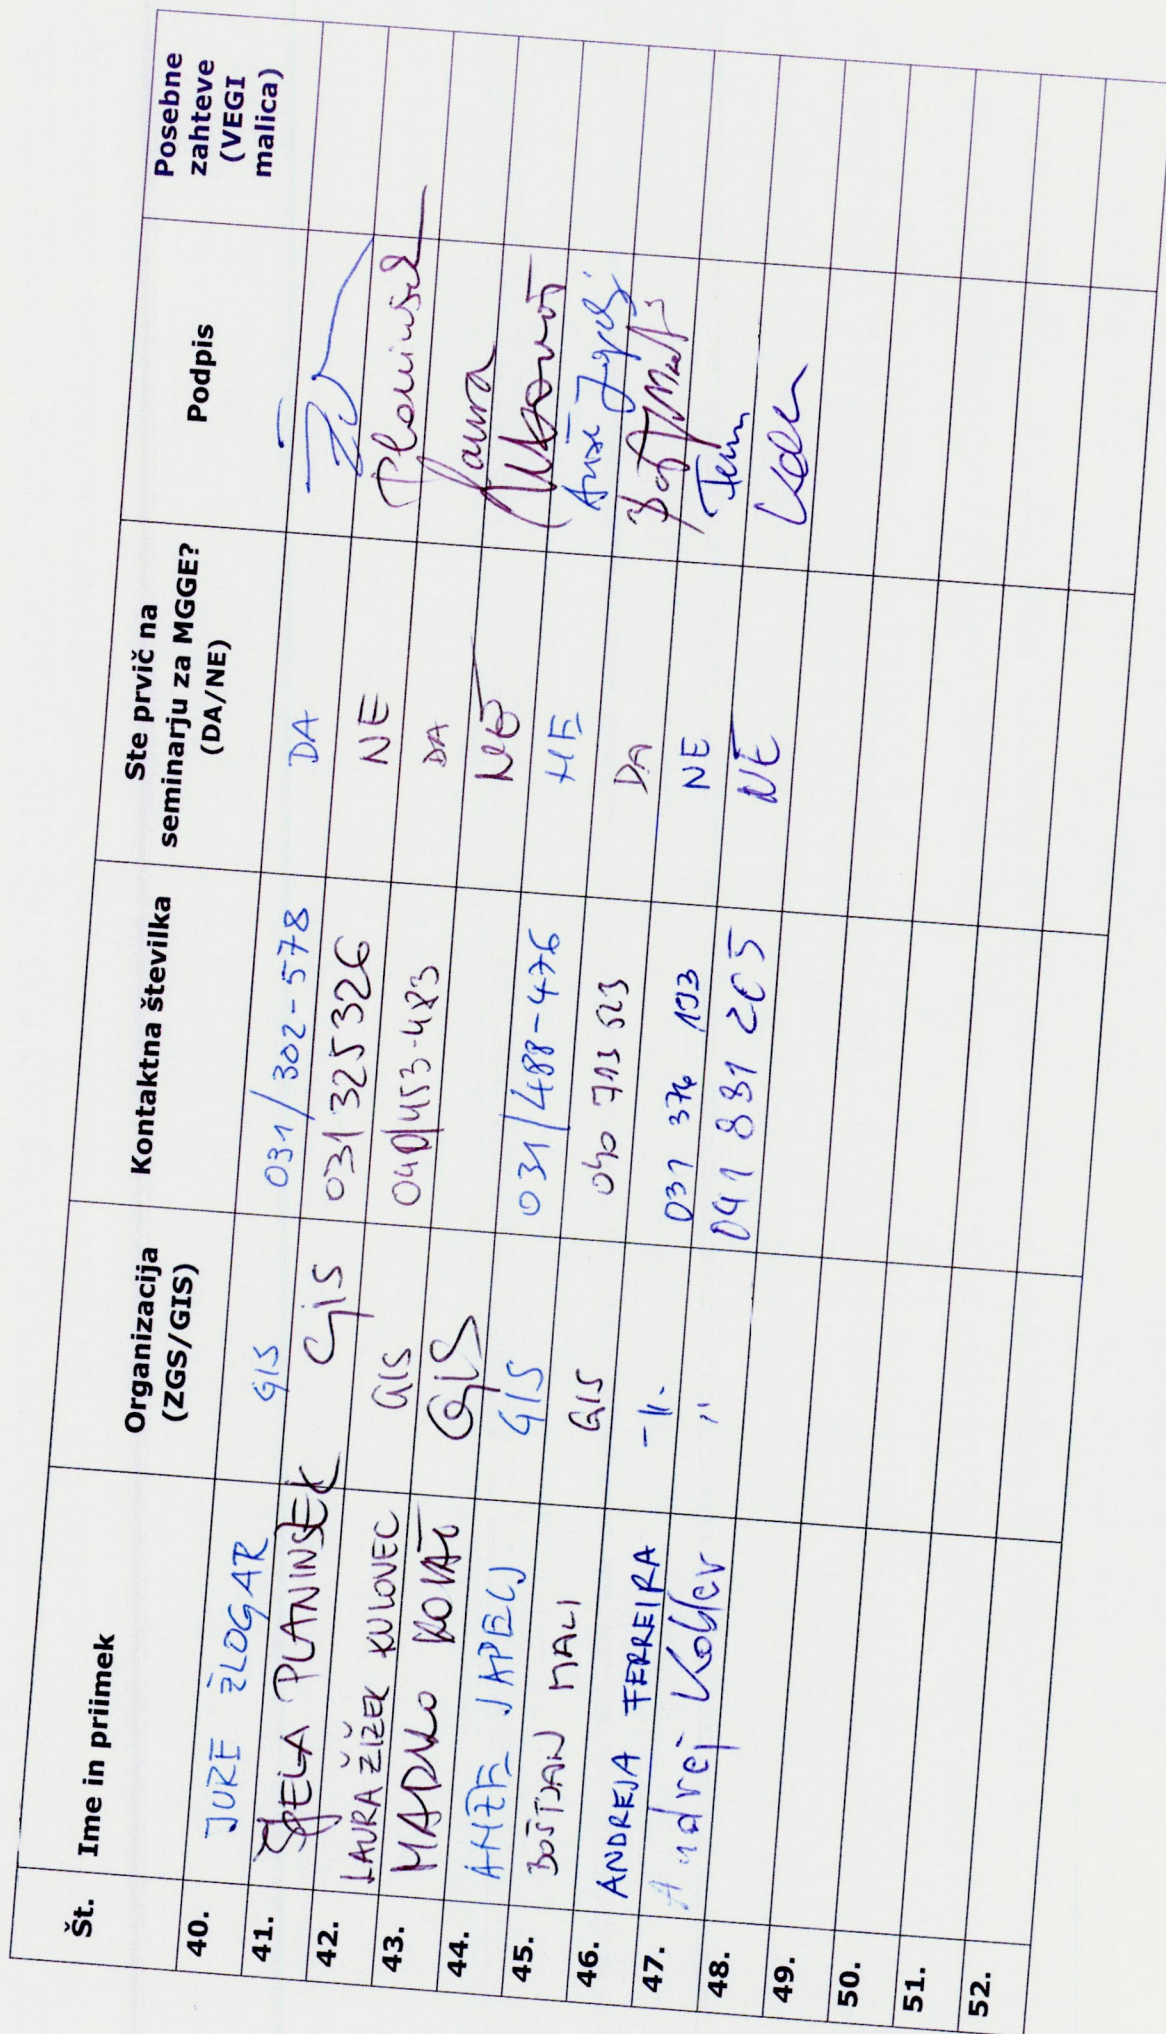 Št. Ime in priimek Organizacija (ZGS/GIS) Kontaktna številka Ste prvič na seminarju za MGGE? (DA/NE) Podpis Posebne zahteve (VEGI malica)
40. JURE ŽLOGAR GIS 031/302-578 DA
41. ŠPELA PLANINŠEK GIS 031 325 326 NE Planinšek
42. LAURA ŽIŽEK KULOVEC GIS 040/453-483 DA Laura
43. MARKO KOVAČ GIS NE
44. ANŽE JAPELJ GIS 031/488-476 NE Anže Japelj
45. BOŠTJAN MALI GIS 040 713 523 DA
46. ANDREJA FERREIRA -||- 031 376 193 NE
47. Andrej Kobler " 041 831 205 NE
48.
49.
50.
51.
52.